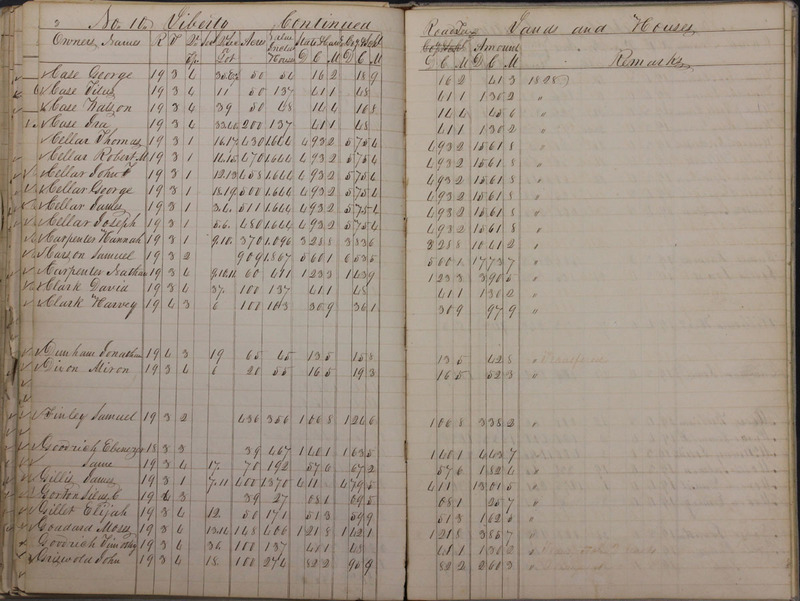 No. 16 Liberty Continued Lands and Houses
Owners Names R T Acres Value Amount Remarks
Case George 19 3 4 50 54 162 189 162 413 1828
Case Titus 19 3 4 11 50 137 411 48 411 1302 "
Case Watson 19 3 4 39 50 48 144 168 144 456 "
Case Ira 19 3 4 200 137 411 48 411 1302 "
Cellar Thomas 19 3 1 16.17 430 1644 4932 5754 4932 15618 "
Cellar Robert M 19 3 1 14.15 470 1644 4932 5754 4932 15618 "
Cellar John F 19 3 1 12.13 458 1644 4932 5754 4932 15618 "
Cellar George 19 3 1 18.19 500 1644 4932 5754 4932 15618 "
Cellar James 19 3 1 3.4 511 1644 4932 5754 4932 15618 "
Cellar Joseph 19 3 1 5.6 480 1644 4932 5754 4932 15618 "
Carpenter Hannah 19 3 1 9.10 370 1096 3288 3836 3288 10412 "
Carson Samuel 19 3 2 909 1867 5601 6535 5601 17737 "
Carpenter Nathan 19 3 4 60 411 1233 1439 1233 3905 "
Clark David 19 3 4 37 100 137 411 48 411 1302 "
Clark Harvey 19 4 3 6 100 103 309 361 309 979 "
Dunham Jonathan 19 4 3 19 65 45 135 158 135 428 "
Dixon Miron 19 3 4 6 20 55 165 193 165 523 "
Finley Samuel 19 3 2 436 356 1068 1246 1068 3382 "
Goodrich Ebenezer 18 3 3 39 467 1401 1635 1401 4437 "
Same 19 3 4 17 70 192 576 672 576 1824 "
Gillis James 19 3 1 7.11 400 1370 411 4795 411 13015 "
Gorton 19 4 3 39 27 081 095 081 257 "
Gillet Elijah 19 3 4 12 50 171 513 599 513 1625 "
Goddard Moses 19 3 4 13.14 148 406 1218 1421 1218 3857 "
Goodrich Timothy 19 3 4 36 100 137 411 48 411 1302 "
Griswold John 19 3 4 18 100 274 822 959 822 2603 "